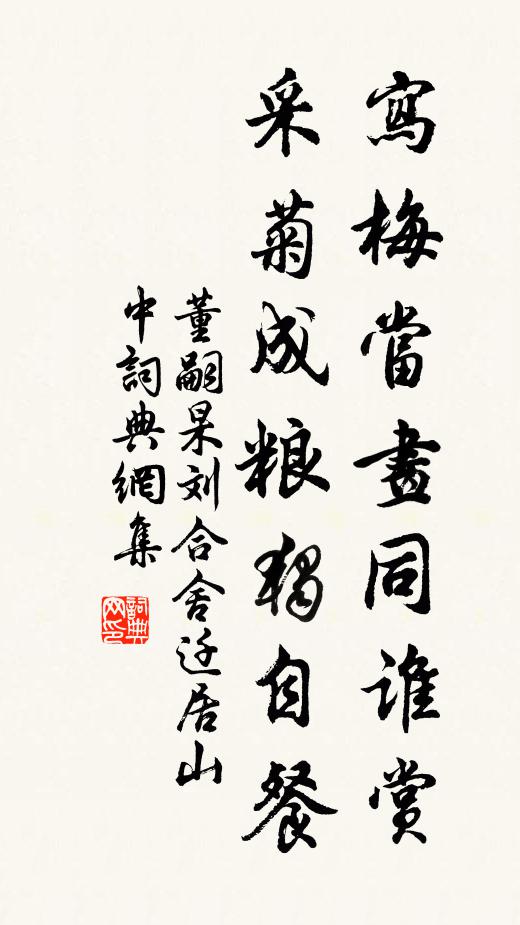 寫梅當畫同誰賞
采菊成粮独自餐
董嗣杲刘合舍迁居山
中詞典網集
詞典网印